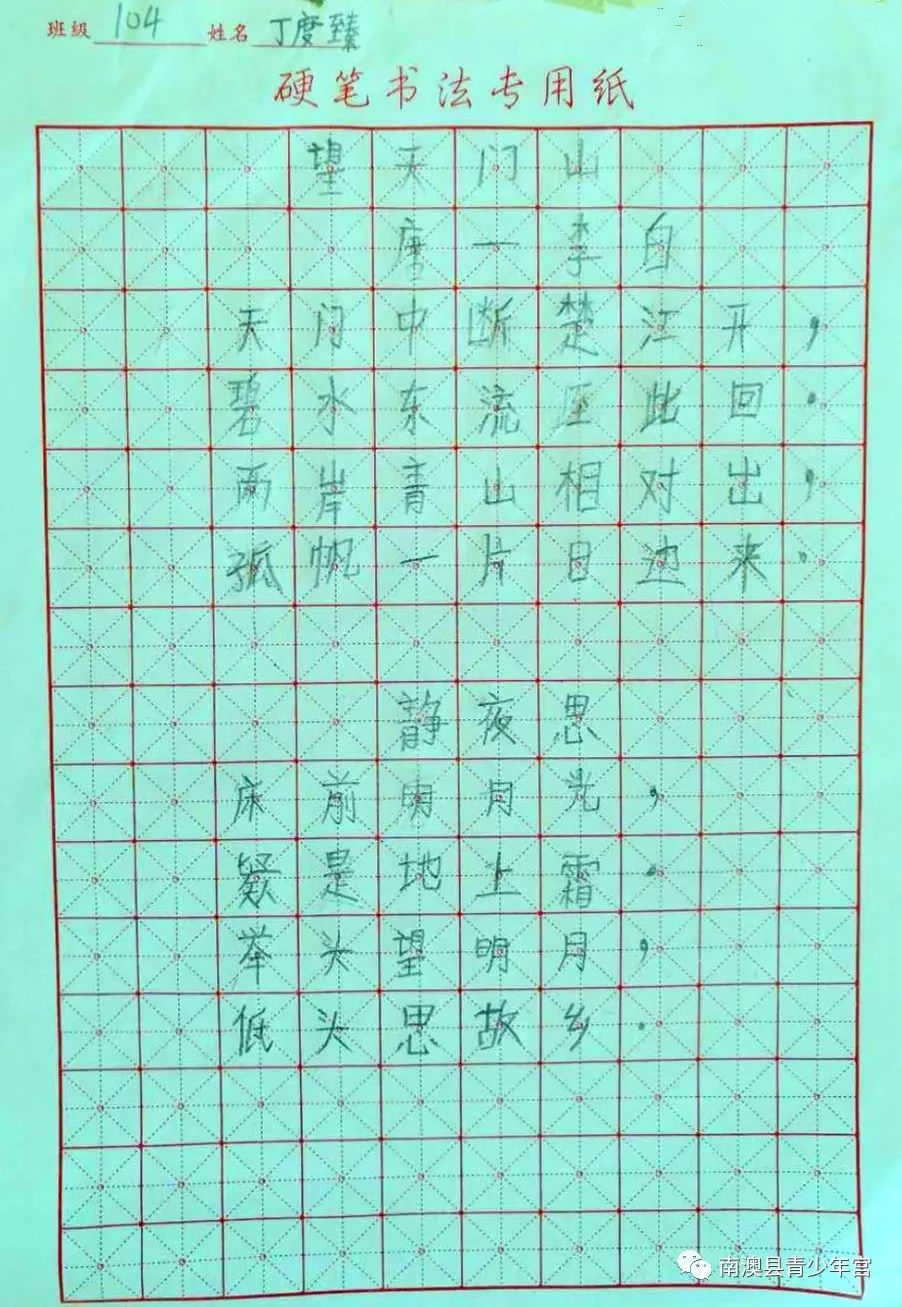 班级 104 姓名 丁度臻
硬笔书法专用纸
望天门山
唐一李白
天门中断楚江开，
碧水东流至此回。
两岸青山相对出，
孤帆一片日边来。
静夜思
床前明月光，
疑是地上霜。
举头望明月，
低头思故乡。
南澳县青少年宫